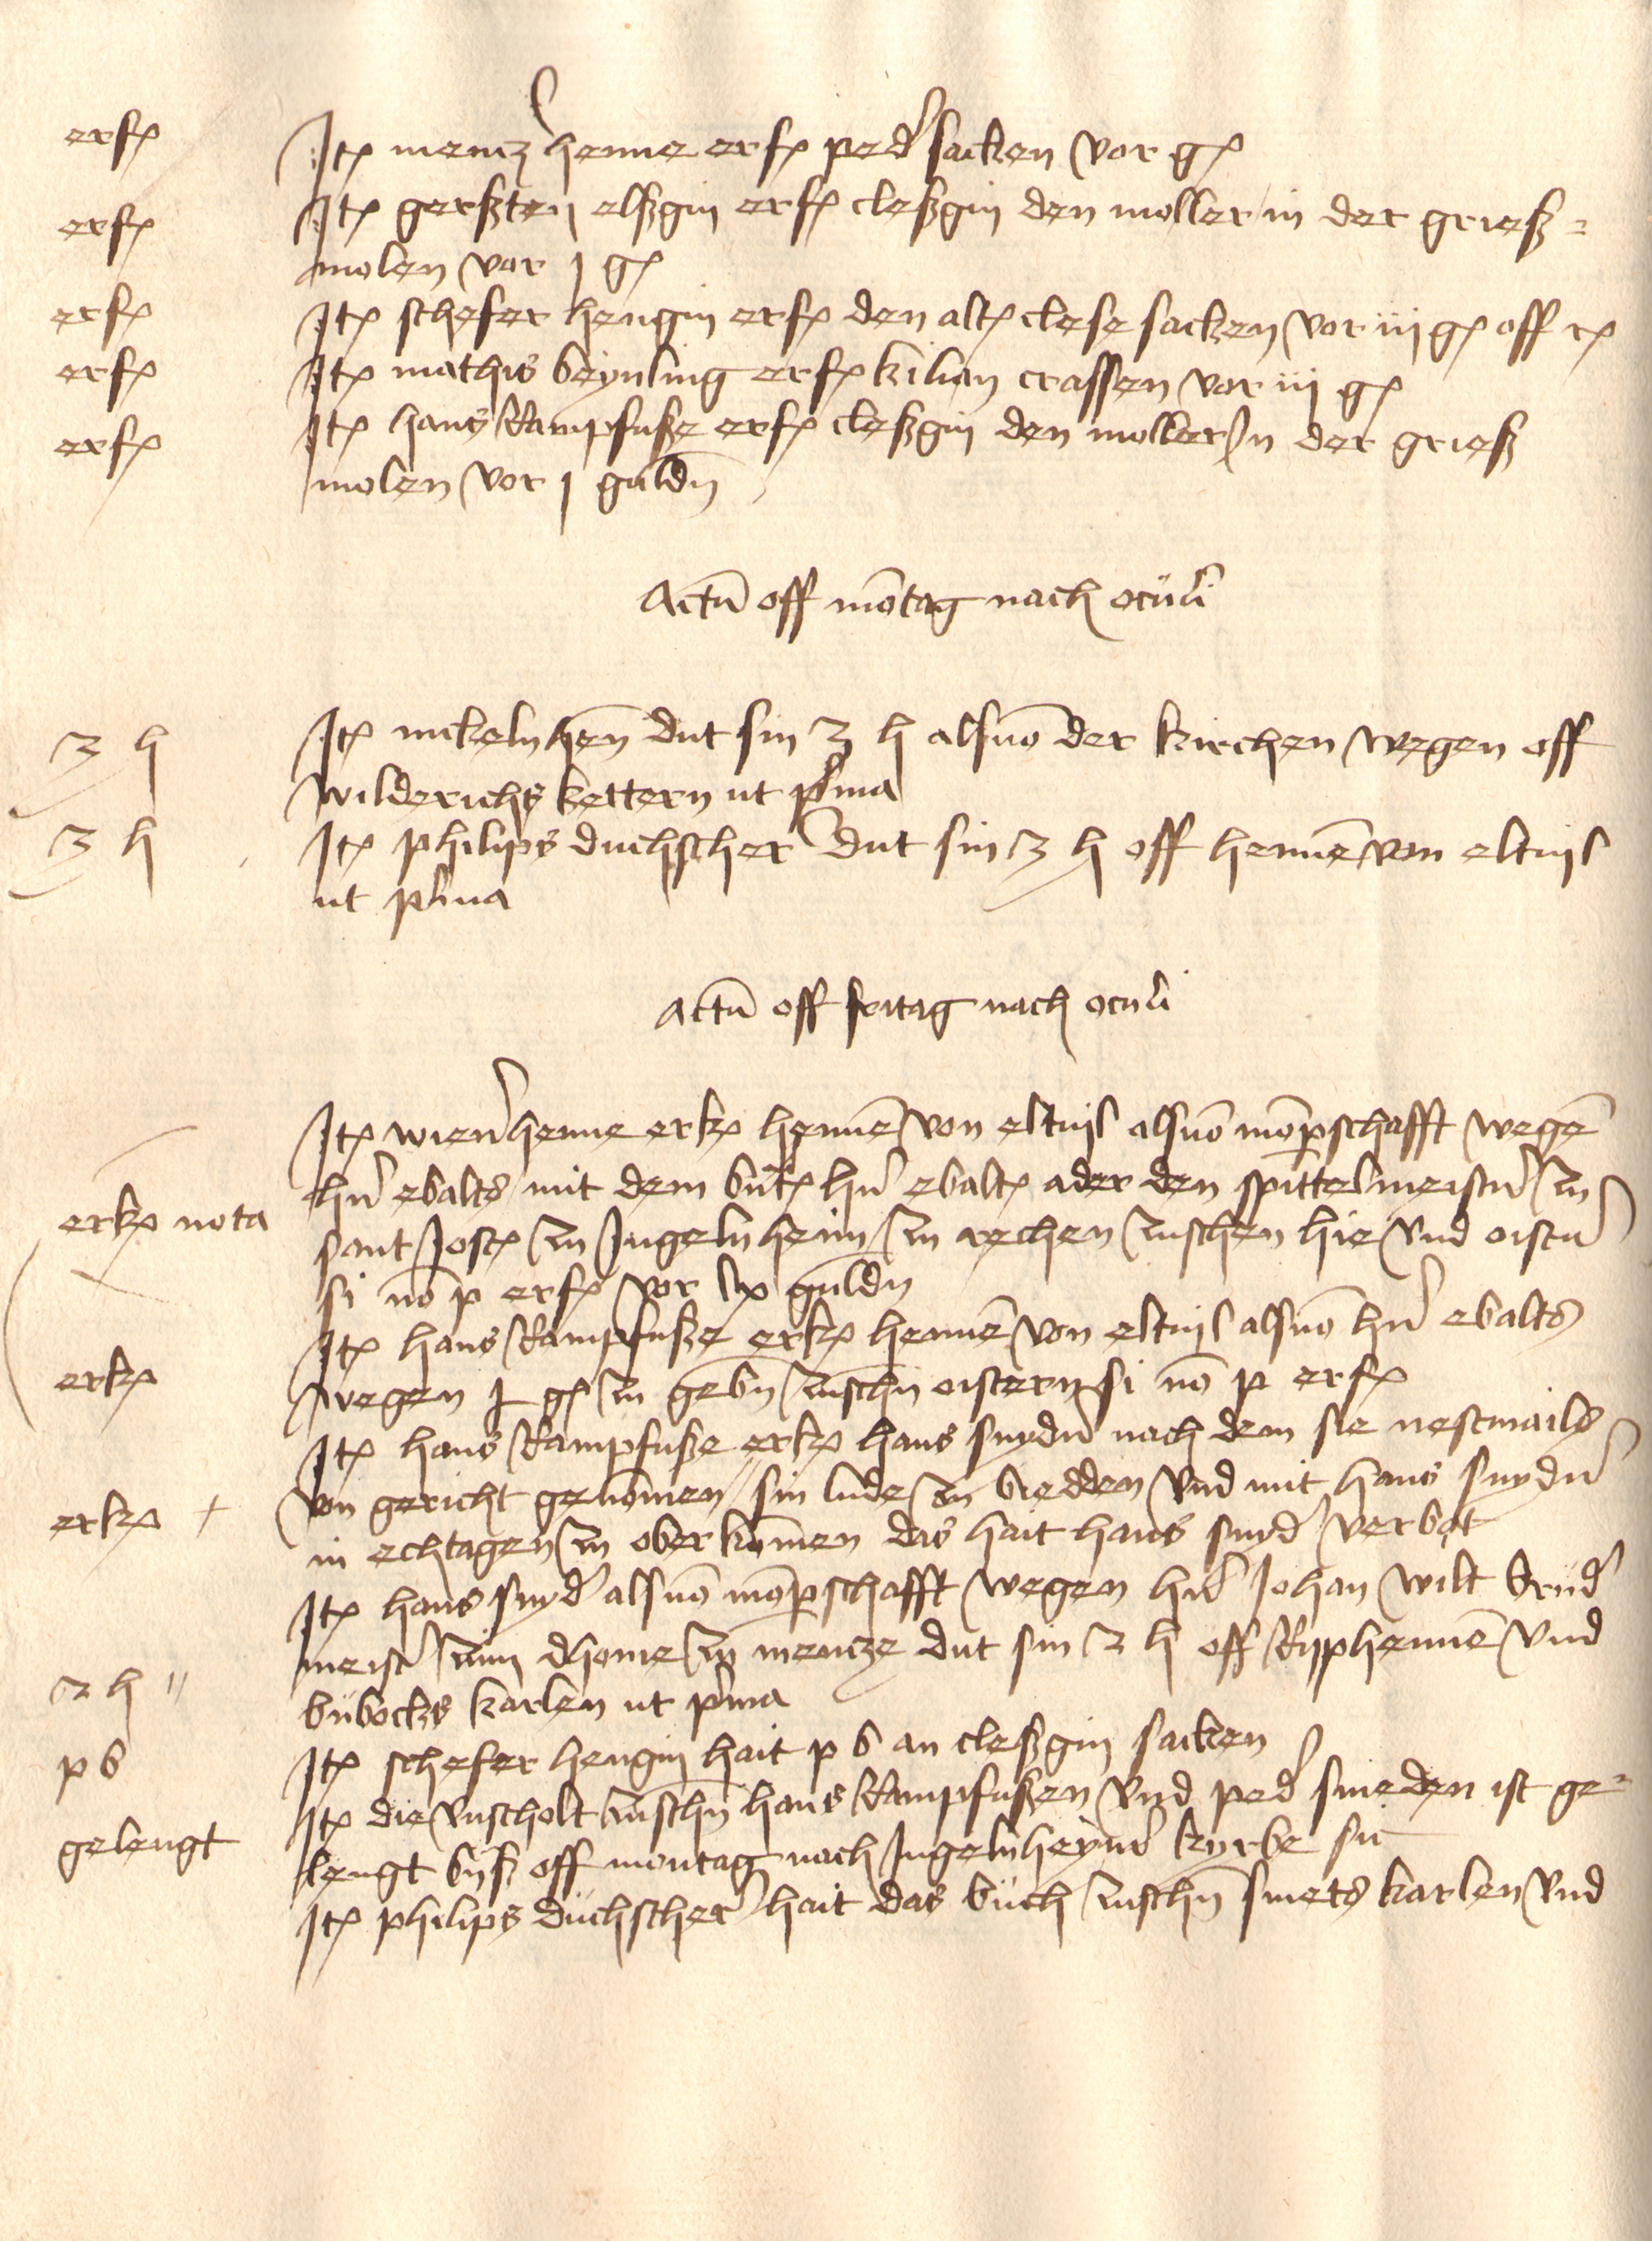 erfꝭ Jtꝭ mencz henne erfꝭ ped' sacken vor gꝭ
erfꝭ Jtꝭ gerßten elßgin erfꝭ cleßgin den moller in der grieß=
molen vor j gꝭ
erfꝭ Jtꝭ schefer hengin erfꝭ den altꝭ clese sacken vor iij gꝭ off rꝭ
erfꝭ Jtꝭ mathis beynling erfꝭ kilian crassen vor iij gꝭ
erfꝭ Jtꝭ hans Rampfuße erfꝭ cleßgin den moller Jn der grieß
molen vor j guldn̄
Actū off mōtag nach oculi
3 h Jtꝭ nickeln hen̄ dut sin 3 h alsuō der kirchen wegen off
wilderichs kettern ut p'ma
3 h Jtꝭ philips duchscher' dut sin 3 h off hennē von eltuil
ut p'ma
Actū off fritag nach oculi
Jtꝭ wiener' henne erkꝭ hennē von eltuil alsuō mōp̱schafft wegē
erkꝭ nota hn̄' ebalts mit dem būtꝭ hn̄' ebaltꝭ ader den spittelmeist'n zu
sant Jostꝭ zu Jngelnheim zu rechen zuschen hie vnd oist'n
si nō p erfꝭ vor lx guldn̄
erkꝭ Jtꝭ hans Rampfuße erkꝭ hennē von eltuil alsuō hn̄' ebalts
wegen j gꝭ zu gebn̄ zuschn̄ oistern si nō p erfꝭ
Jtꝭ hans Rampfuße erkꝭ hans snyd'n nach dem sie nestmails
erkꝭ + von gericht genōmen sin lude zu bredden vnd mit hans snyd'n
in echtagen zu oberkūmen das hait hans snyd' verbot
Jtꝭ hans snyd' alsuō mōp̱schafft wegen h'n Johan wilt brud'
2 h meist' zum dhome zu mencze dut sin 2 h off Ryphennē vnd
bubocks karlen ut p'ma
p b Jtꝭ schefer hengin hait p b an cleßgin sacken
Jtꝭ die vnscholt zuschn̄ hans Rampfußen vnd ped' smeden ist ge=
gelengt lengt biß off montag nach Jngelnheym' kyrbe sū
Jtꝭ philips duchscher' hait das buch zuschn̄ smets karlen vnd